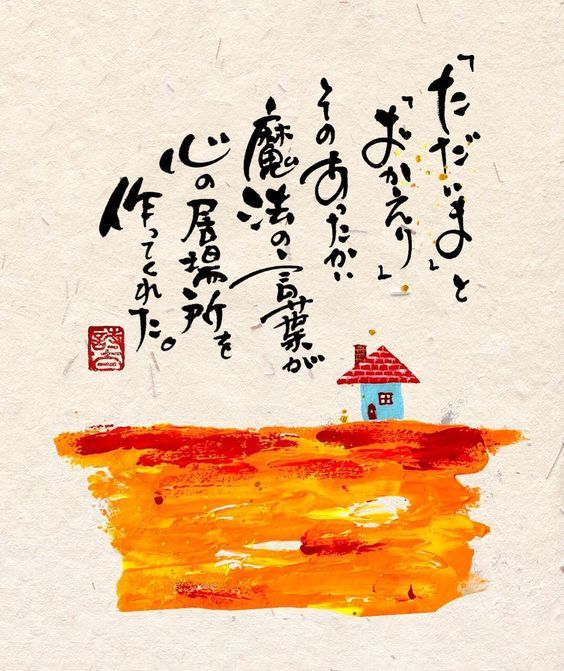 「ただいま」と
「おかえり」
そのあったかい
魔法の言葉が
心の居場所を
作ってくれた。